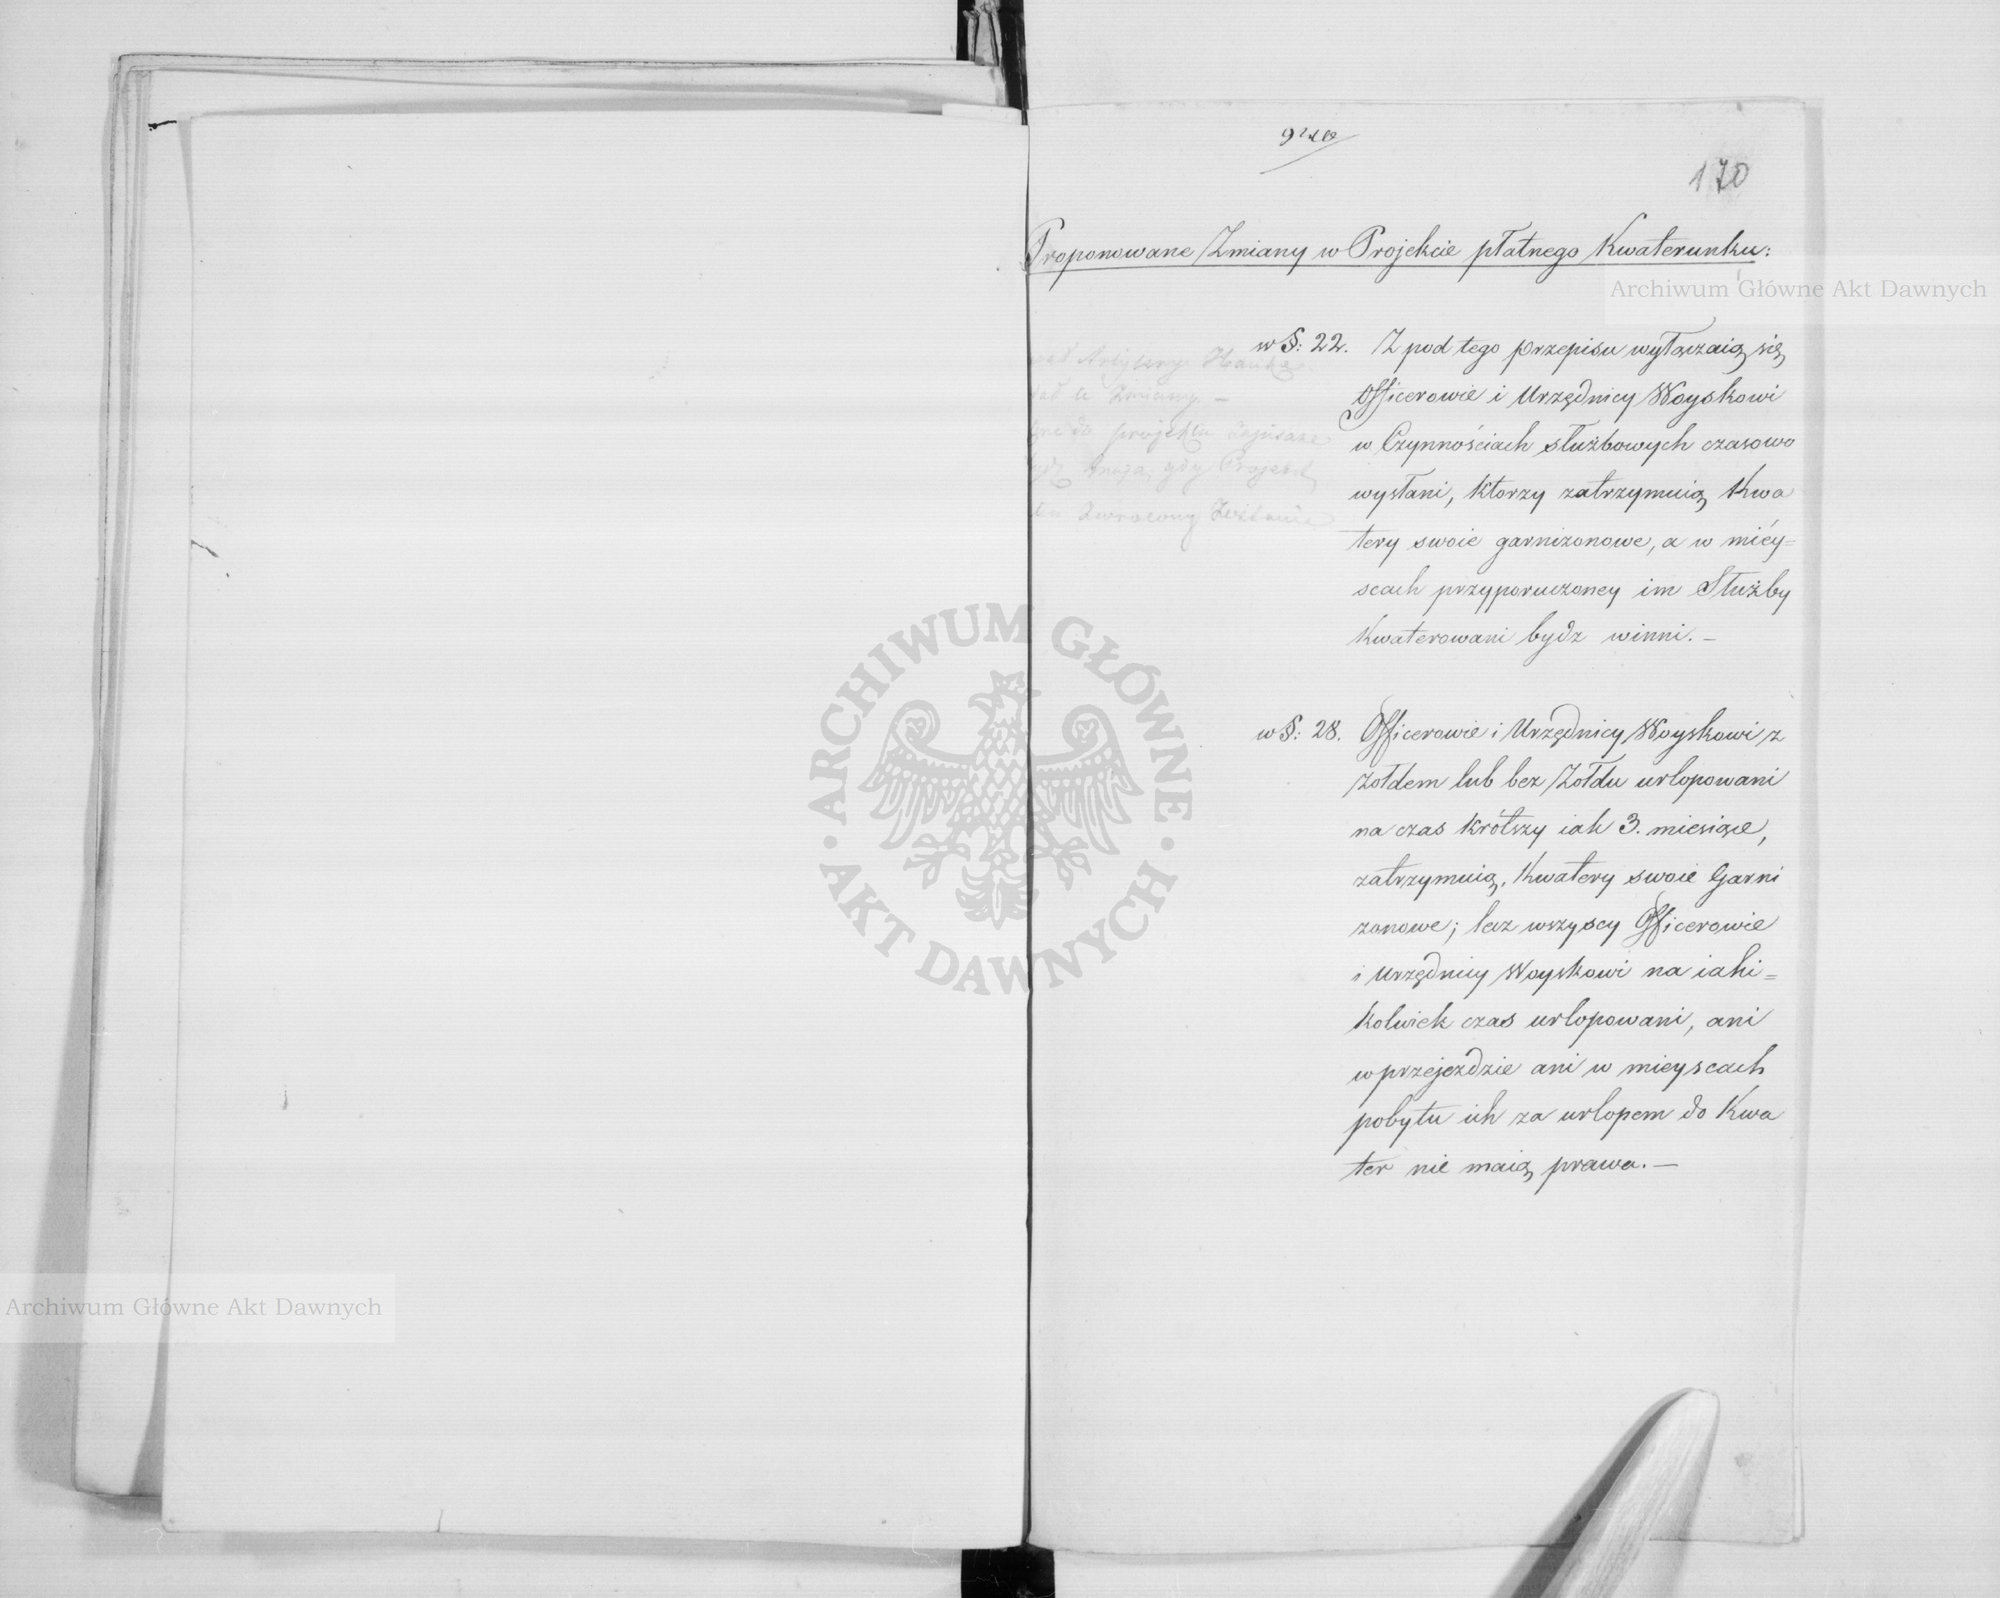 170
Proponowane Zmiany w Projekcie płatnego Kwaterunku:
Archiwum Główne Akt Dawnych
w §: 22. Z pod tego przepisu wyłączaią się
Officerowie i Urzędnicy Woyskowi
w Czynnościach służbowych czasowo
wysłani, którzy zatrzymuią Kwa
tery swoie garnizonowe, a w miéy=
scach przyporuczoney im Służby
Kwaterowani bydz winni. —
projektu
gdy Projekt
w §: 28. Officerowie i Urzędnicy Woyskowi z
żołdem lub bez Żołdu urlopowani
na czas krótszy iak 3. miesiące,
zatrzymuią, Kwatery swoie Garni
zonowe; lecz wszyscy Officerowie
i Urzędnicy Woyskowi na iaki=
kolwiek czas urlopowani, ani
w przejezdzie ani w mieyscach
pobytu ich za urlopem do Kwa
ter nie maią prawa. —
ARCHIWUM GŁÓWNE
AKT DAWNYCH
Archiwum Główne Akt Dawnych